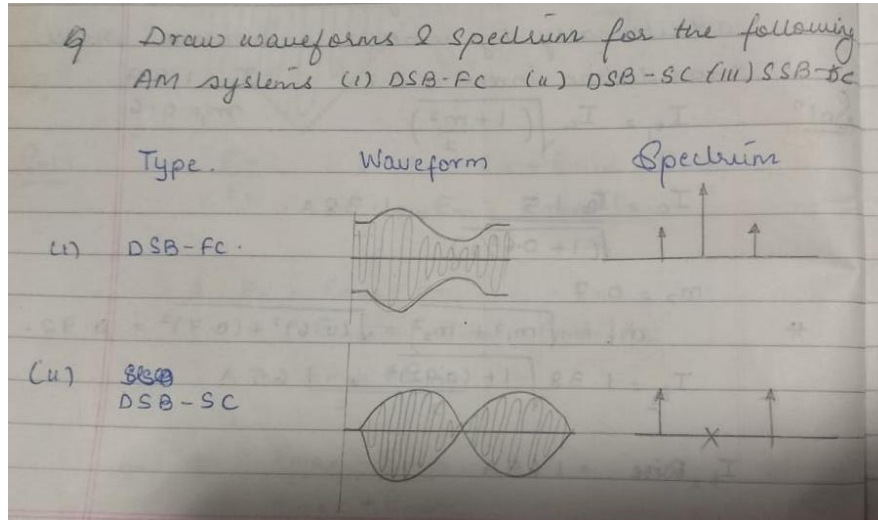 Q Draw waveforms & spectrum for the following
AM systems (i) DSB-FC (ii) DSB-SC (iii) SSB-SC
Type. Waveform Spectrum
(i) DSB-FC.
(ii)
DSB-SC